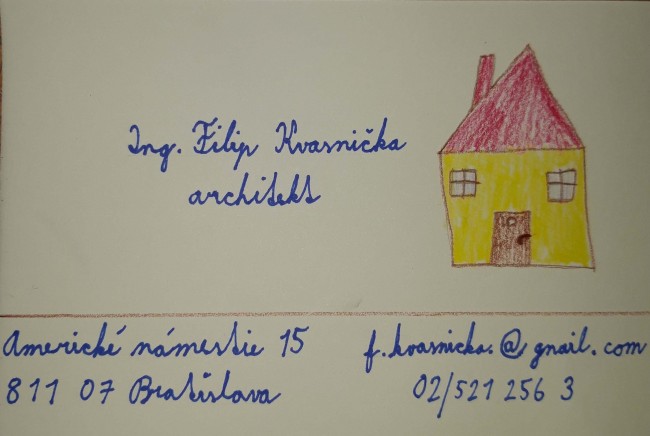 Ing. Filip Kvasnička
architekt
Americké námestie 15
811 07 Bratislava
f.kvasnicka.@gnail.com
02/521 256 3